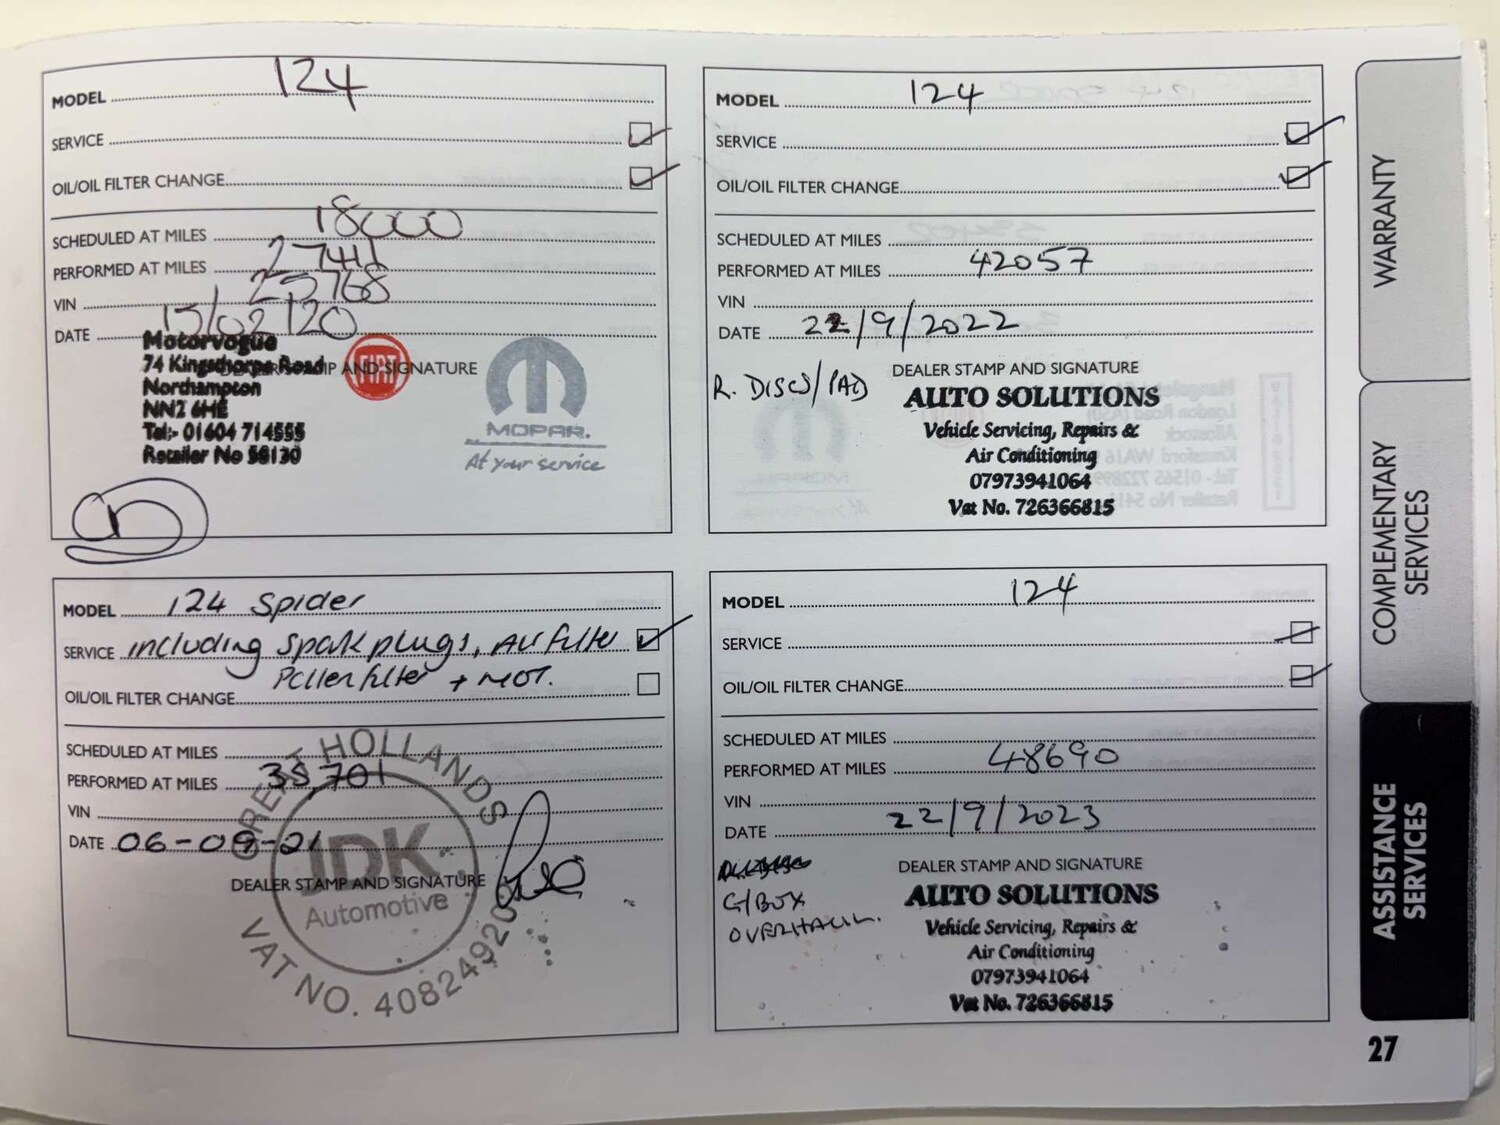 MODEL 124
SERVICE
OIL/OIL FILTER CHANGE
SCHEDULED AT MILES 18000
PERFORMED AT MILES 27441
VIN 25768
DATE 15/02/20
DEALER STAMP AND SIGNATURE
Motorvogue
74 Kingsthorpe Road
Northampton
NN2 6HE
Tel:- 01604 714555
Retailer No 58130
FIAT
MOPAR.
At your service
MODEL 124
SERVICE
OIL/OIL FILTER CHANGE
SCHEDULED AT MILES
PERFORMED AT MILES 42057
VIN
DATE 22/9/2022
DEALER STAMP AND SIGNATURE
R. DISCS/PAD
AUTO SOLUTIONS
Vehicle Servicing, Repairs &
Air Conditioning
07973941064
Vat No. 726366815
MODEL 124 Spider
SERVICE including Spark plugs, Air filter
Pollen filter + MOT.
OIL/OIL FILTER CHANGE
SCHEDULED AT MILES
PERFORMED AT MILES 35701
VIN
DATE 06-09-21
DEALER STAMP AND SIGNATURE
GREAT HOLLANDS
JDK
Automotive
VAT NO. 40824920
MODEL 124
SERVICE
OIL/OIL FILTER CHANGE
SCHEDULED AT MILES
PERFORMED AT MILES 48690
VIN
DATE 22/9/2023
DEALER STAMP AND SIGNATURE
G/BOX
OVERHAUL.
AUTO SOLUTIONS
Vehicle Servicing, Repairs &
Air Conditioning
07973941064
Vat No. 726366815
WARRANTY
COMPLEMENTARY
SERVICES
ASSISTANCE
SERVICES
27